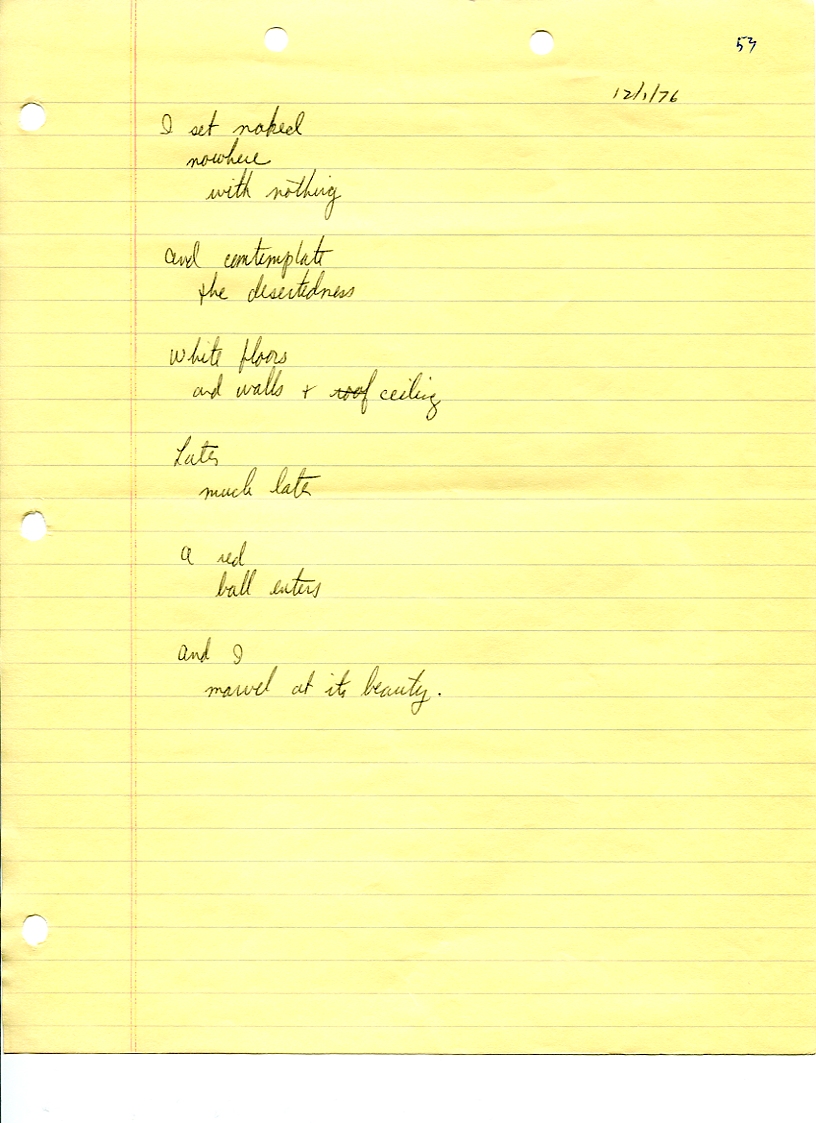 53
12/1/76
I set naked
nowhere
with nothing
and contemplate
the desertedness
White floors
and walls + ~~roof~~ ceiling
Later
much later
a red
ball enters
and I
marvel at its beauty.